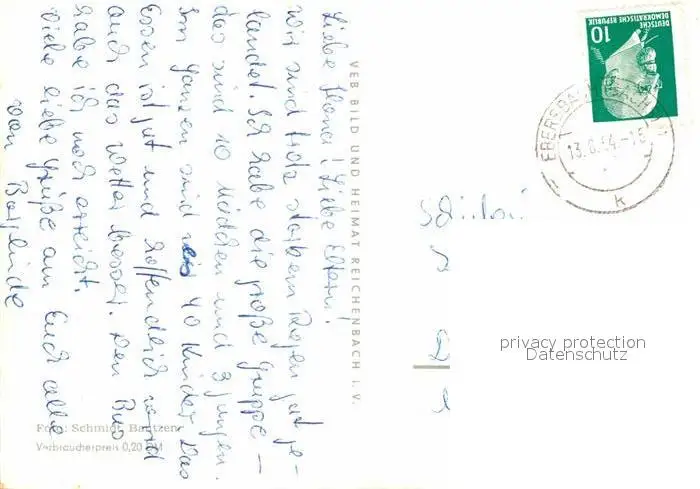 Liebe Ilona! Liebe Eltern!
Wir sind trotz starkem Regen gut ge-
landet. Ich habe die große Gruppe –
das sind 10 Mädchen und 3 Jungen.
Im Ganzen sind 40 Kinder. Das
Essen ist gut und hoffendlich wird
auch das Wetter besser. Den Bus
habe ich noch erreicht.
Viele liebe Grüße an Euch alle
von
VEB BILD UND HEIMAT REICHENBACH I. V.
Foto: Schmidt, Bautzen
Verbraucherpreis 0,20 DM
10
DEUTSCHE
DEMOKRATISCHE REPUBLIK
EBERSBACH
13.8.64
k
privacy protection
Datenschutz